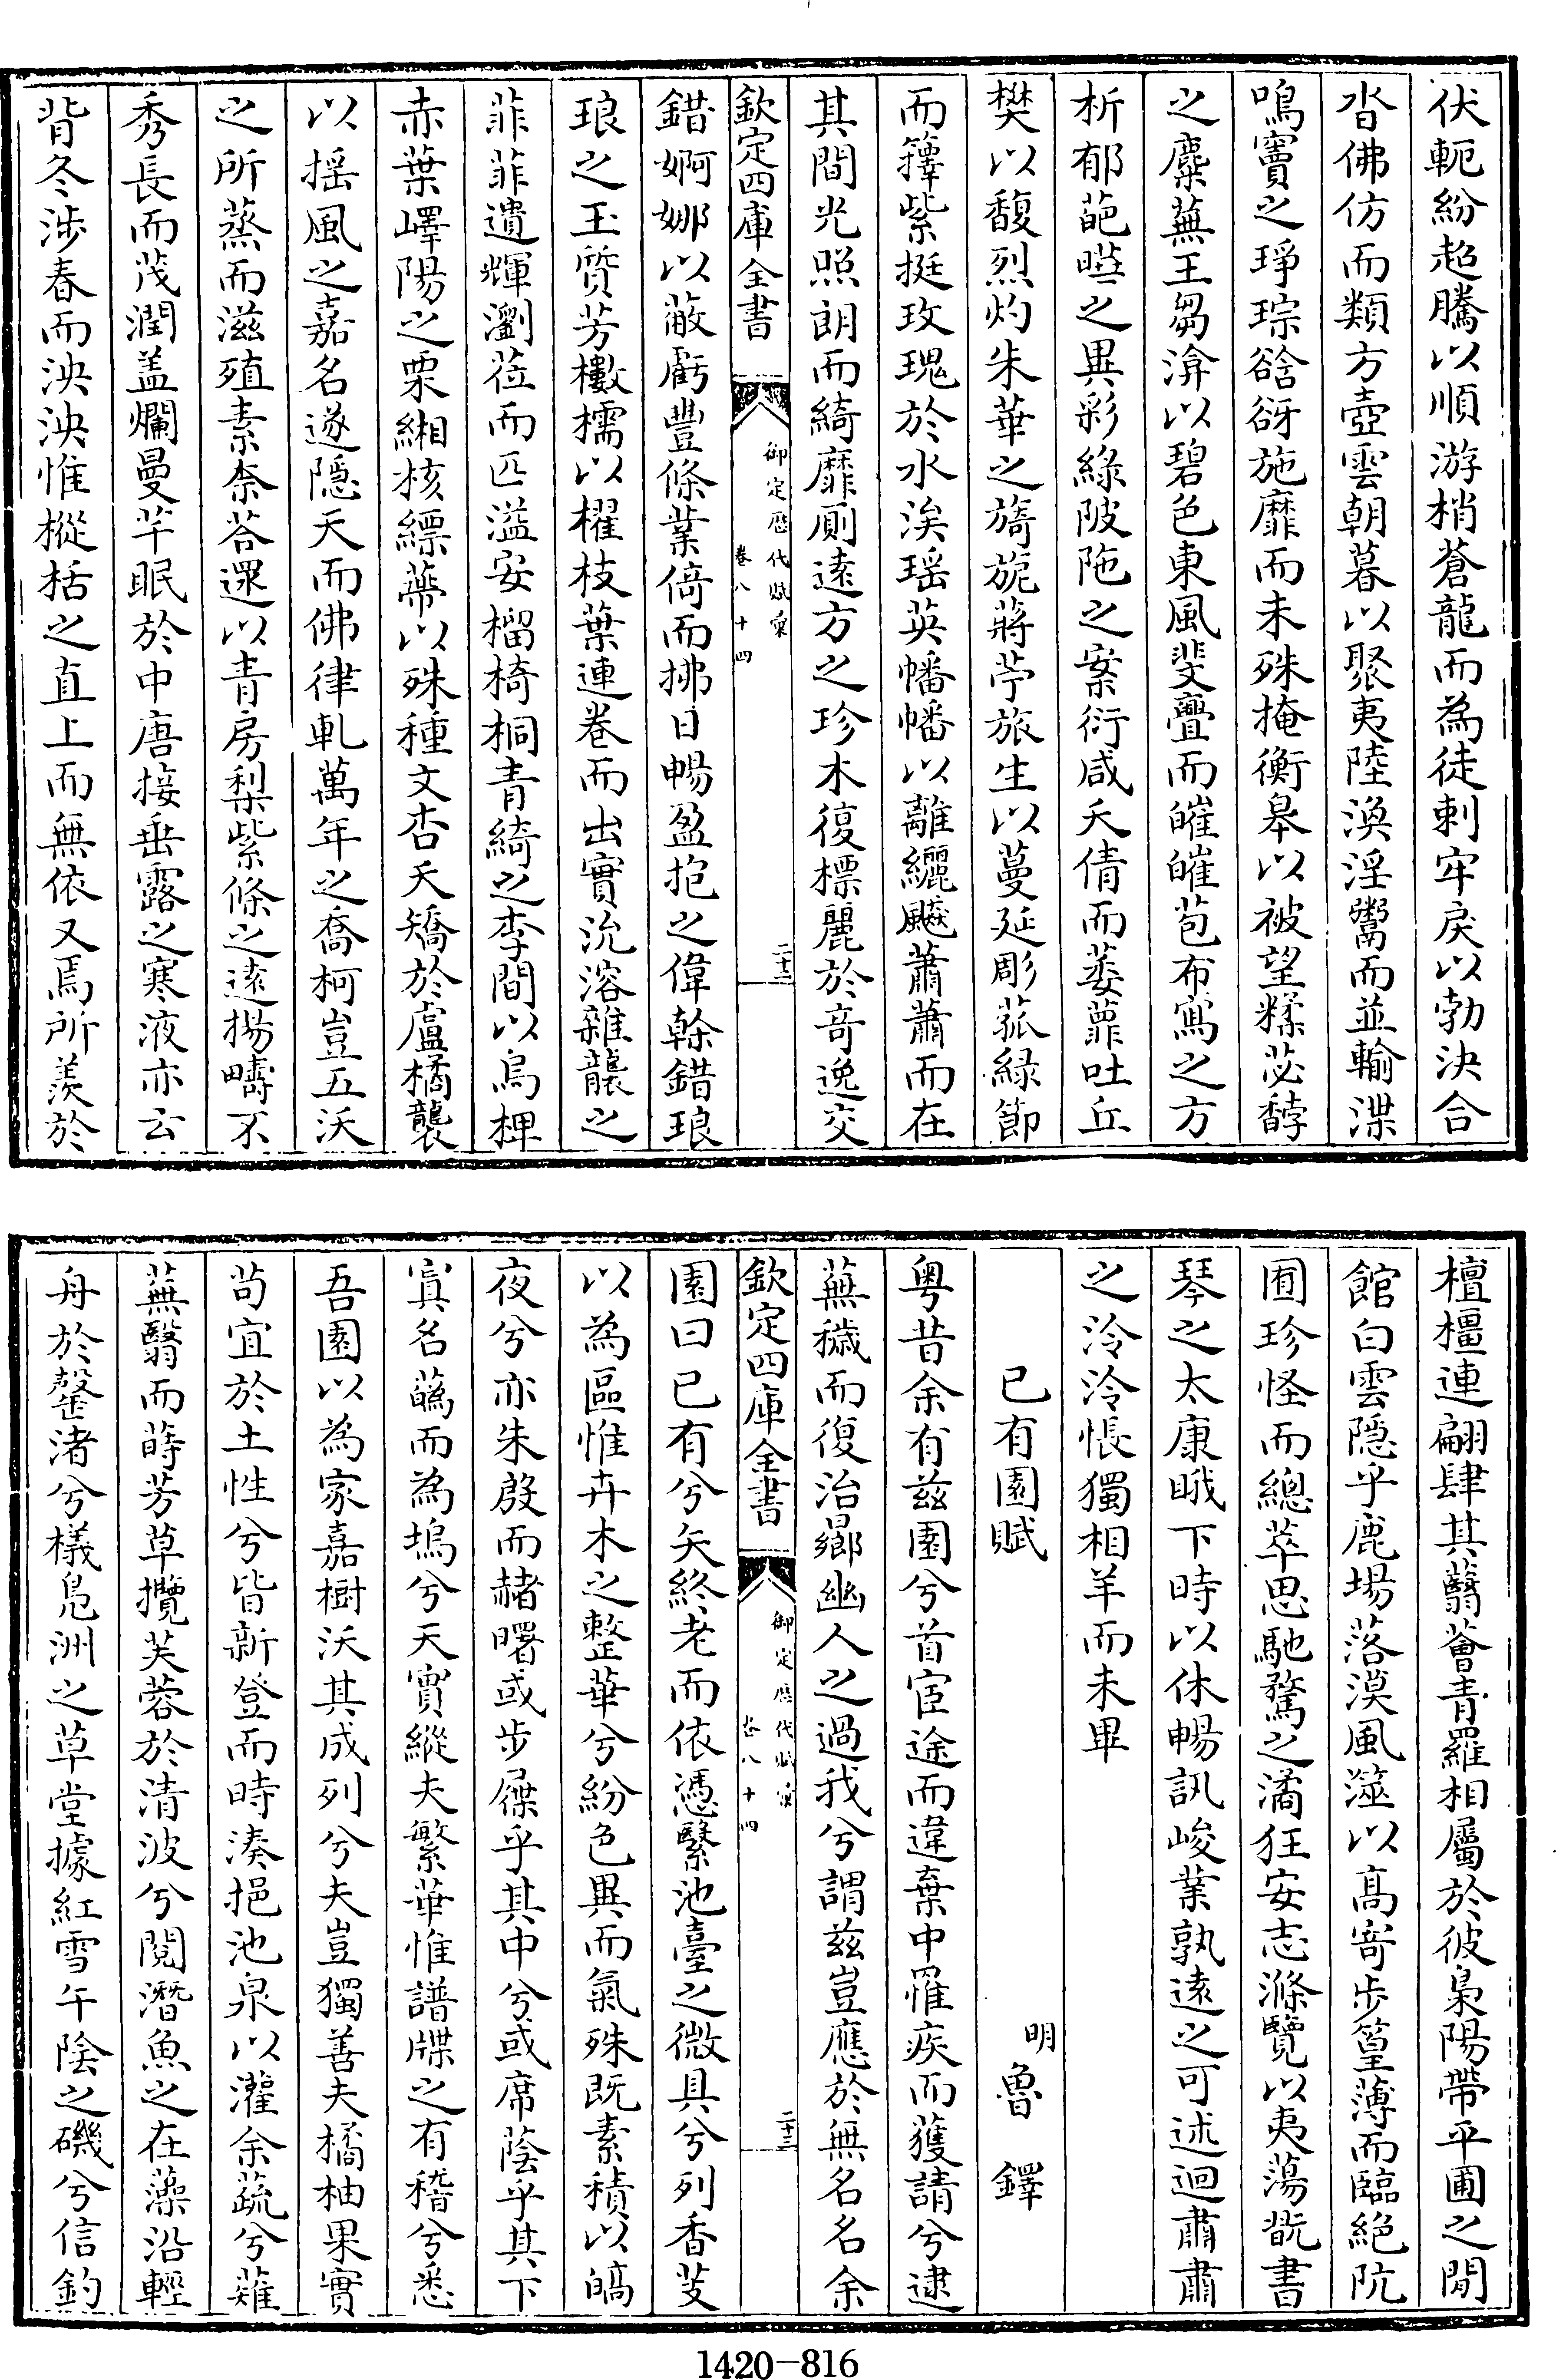 伏軛紛超騰以順游梢蒼龍而為徒剌牢戾以勃決合
沓佛仿而類方壺雲朝暮以聚夷陸渙淫鬻而並輸渫
鳴竇之琤琮谽谺施靡而未殊掩衡皋以被望糅苾馞
之麋蕪王芻渰以碧色東風斐亹而皠皠苞布寫之方
析郁葩㬢之異彩綠陂陁之案衍咸夭倩而蒌蘼吐丘
樊以馥烈灼朱華之旖旎蔣苧旅生以蔓延彫菰緑節
而籜紫挺玫瑰於水涘瑶英幡幡以離纚飈蕭蕭而在
其間光照朗而綺靡厠遠方之珍木復標麗於奇逸交
欽定四庫全書
御定歷代賦彙
卷八十四
二十二
錯婀娜以蔽虧豐條業倚而拂日暢盈抱之偉榦錯琅
琅之玉質芳櫢檽以櫂枝葉連卷而出實沇溶雜襲之
菲菲遺輝瀏莅而匹溢安榴椅桐青綺之李間以烏椑
赤葉嶧陽之栗緗核縹蔕以殊種文杏夭矯於盧橘襲
以摇風之嘉名遂隠天而佛律軋萬年之喬柯豈五沃
之所蒸而滋殖素柰荅遝以青房梨紫條之遠揚疇不
秀長而茂潤盖爛曼芊眠於中唐接垂露之寒液亦云
背冬涉春而泱泱惟樅栝之直上而無依又焉所羨於
檀橿連翩肆其蘙薈青羅相屬於彼梟陽帶平圃之閒
館白雲隠乎鹿場落漠風澨以髙寄步篁薄而臨絶阬
囿珍怪而總萃思馳騖之潏狂安志滌覽以夷蕩翫書
琴之太康睋下時以休暢訊峻業孰遠之可述迴肅肅
之泠泠悵獨相羊而未畢
已有園賦
明
魯鐸
粤昔余有兹園兮首宦途而違棄中罹疾而獲請兮逮
蕪穢而復治曏幽人之過我兮謂兹豈應於無名名余
欽定四庫全書
御定歷代賦彙
卷八十四
二十三
園曰已有兮矢終老而依憑繄池臺之微具兮列香芰
以為區惟卉木之整華兮紛色異而氣殊既素積以皜
夜兮亦朱殷而赭曙或步屧乎其中兮或席蔭乎其下
寘名蘤而為塢兮天實縱夫繁華惟譜牒之有稽兮悉
吾園以為家嘉樹沃其成列兮夫豈獨善夫橘柚果實
茍宜於土性兮皆新登而時湊挹池泉以灌余蔬兮薙
蕪翳而蒔芳草攬芙蓉於清波兮閱潛魚之在藻沿輕
舟於罄渚兮檥鳬洲之草堂據紅雪午陰之磯兮信釣
1420-816